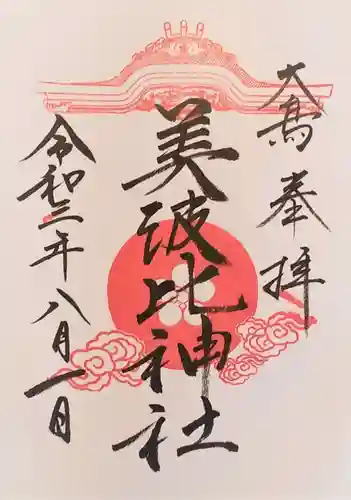 大高 奉拝
美波比神社
令和三年八月一日